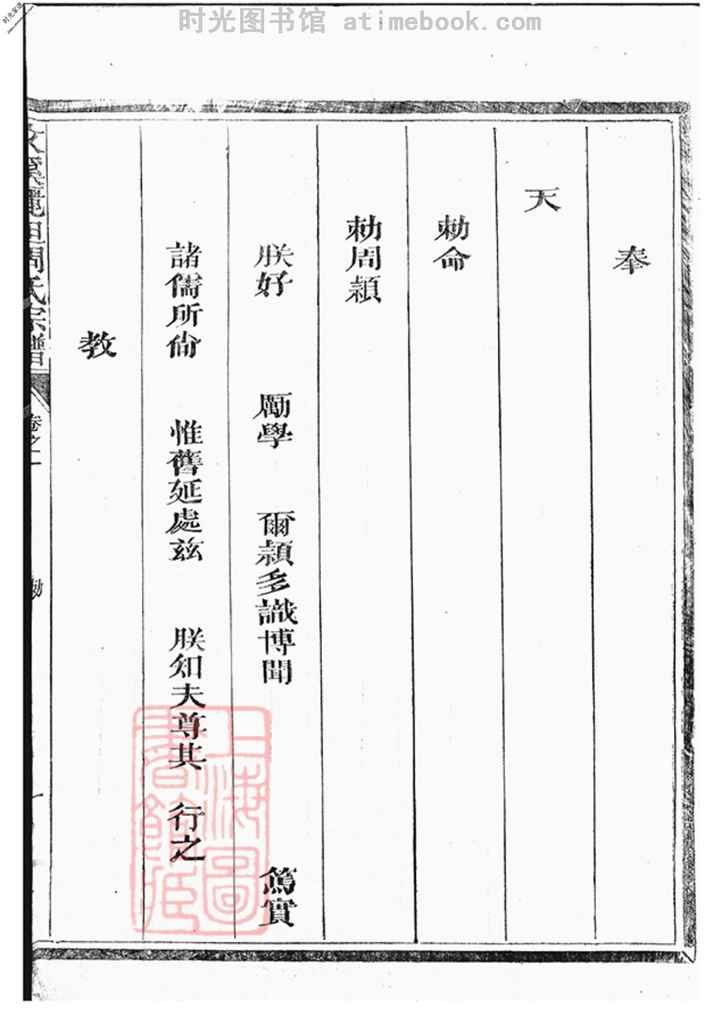 时光图书馆 atimebook.com
时光图书馆
奉
天
勅命
勅周顈
朕好 勵學 爾顈多識博聞 篤實
諸儒所尙 惟舊延處玆 朕知夫尊其 行之
教
周氏宗譜
卷之二
勅
上海圖書館藏